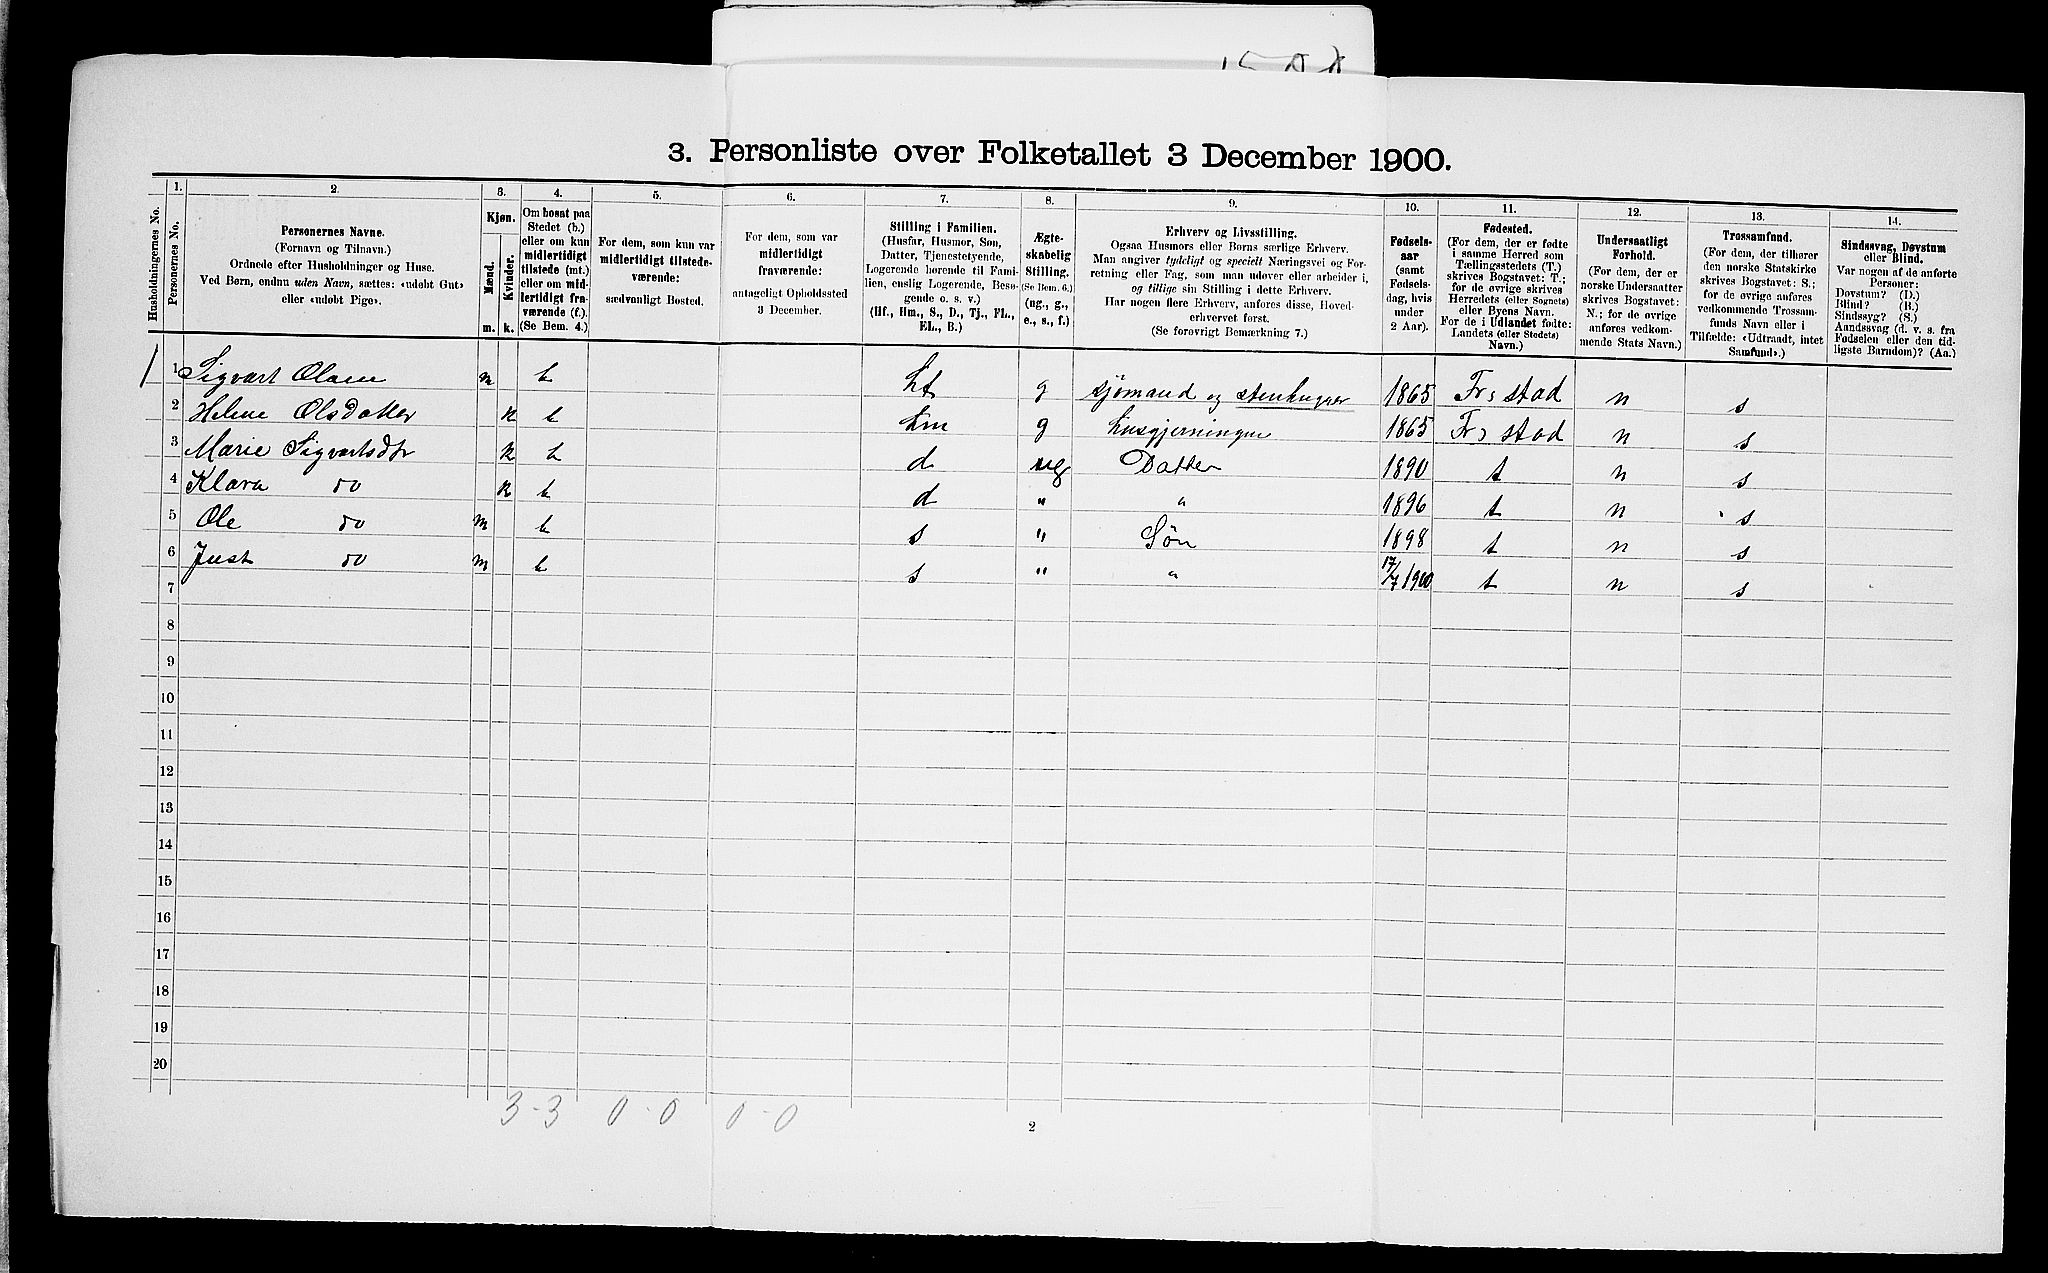 3. Personliste over Folketallet 3 December 1900.
Husholdningernes No.
1. Personernes No.
2. Personernes Navne.
(Fornavn og Tilnavn.)
Ordnede efter Husholdninger og Huse.
Ved Børn, endnu uden Navn, sættes: «udøbt Gut»
eller «udøbt Pige».
3. Kjøn.
Mænd. Kvinder.
m. k.
4. Om bosat paa
Stedet (b.)
eller om kun
midlertidigt
tilstede (mt.)
eller om mid-
lertidigt fra-
værende (f.).
(Se Bem. 4.)
5. For dem, som kun var
midlertidigt tilstede-
værende:
sædvanligt Bosted.
6. For dem, som var
midlertidigt
fraværende:
antageligt Opholdssted
3 December.
7. Stilling i Familien.
(Husfar, Husmor, Søn,
Datter, Tjenestetyende,
Logerende hørende til Fami-
lien, enslig Logerende, Besø-
gende o. s. v.)
(Hf., Hm., S., D., Tj., FL.,
EL., B.)
8. Ægte-
skabelig
Stilling.
(Se Bem. 6.)
(ug., g.,
e., s., f.)
9. Erhverv og Livsstilling.
Ogsaa Husmors eller Børns særlige Erhverv.
Man angiver tydeligt og specielt Næringsvei og For-
retning eller Fag, som man udøver eller arbeider i,
og tillige sin Stilling i dette Erhverv.
Har nogen flere Erhverv, anføres disse, Hoved-
erhvervet først.
(Se forøvrigt Bemærkning 7.)
10. Fødsels-
aar
(samt
Fødsels-
dag, hvis
under
2 Aar).
11. Fødested.
(For dem, der er fødte
i samme Herred som
Tællingsstedets (T.)
skrives Bogstavet: T.;
for de øvrige skrives
Herredets (eller Sognets)
eller Byens Navn.
For de i Udlandet fødte:
Landets (eller Stedets)
Navn.)
12. Undersaatligt
Forhold.
(For dem, der er
norske Undersaatter
skrives Bogstavet:
N.; for de øvrige
anføres vedkom-
mende Stats Navn.)
13. Trossamfund.
(For dem, der tilhører
den norske Statskirke
skrives Bogstavet: S.;
for de øvrige anføres
vedkommende Trossam-
funds Navn eller i
Tilfælde: «Udtraadt, intet
Samfund».)
14. Sindssvag, Døvstum
eller Blind.
Var nogen af de anførte
Personer:
Døvstum? (D.)
Blind? (B.)
Sindssyg? (S.)
Aandssvag (d. v. s. fra
Fødselen eller den tid-
ligste Barndom)? (Aa.)
1 1 Sigvart Olsen m b hf g sjømand og stenhugger 1865 Fr, stad n s
2 Helene Olsdatter k b hm g husgjerningen 1865 Fr, stad n s
3 Marie Sigvartsdtr k b d ug Datter 1890 t n s
4 Klara do k b d " " 1896 t n s
5 Ole do m b s " Søn 1898 t n s
6 Just do m b s " " 17/7 1900 t n s
7
8
9
10
11
12
13
14
15
16
17
18
19
20
3-3 0-0 0-0
2